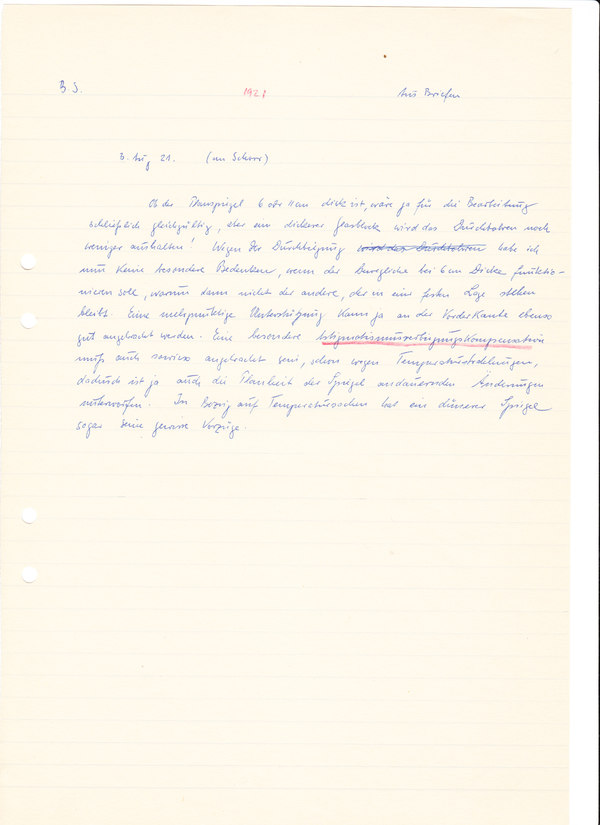 B. S.
1921
Aus Briefen
3. Aug 21. (an Schorr)
Ob der Planspiegel 6 oder 11 cm dick ist, wäre ja für die Bearbeitung
schließlich gleichgültig, aber ein dickerer Glasblock wird das Durchbohren noch
weniger aushalten! Wegen der Durchbiegung wird das Durchbohren habe ich
nun keine besondere Bedenken, wenn der bei 6 cm Dicke funktio-
nieren soll, warum dann nicht der andere, der in eine festen Lage stehen
bleibt. Eine mehrpunktige Unterstützung kann ja an der Vorderkante ebenso
gut angebracht werden. Eine besondere
muß auch sowieso angebracht sein, schon wegen Temperaturstrahlungen,
dadurch ist ja auch die Planheit der Spiegel andauernden Änderungen
unterworfen. In Bezug auf Temperatursachen hat ein dünnerer Spiegel
sogar seine gewisse Vorzüge.